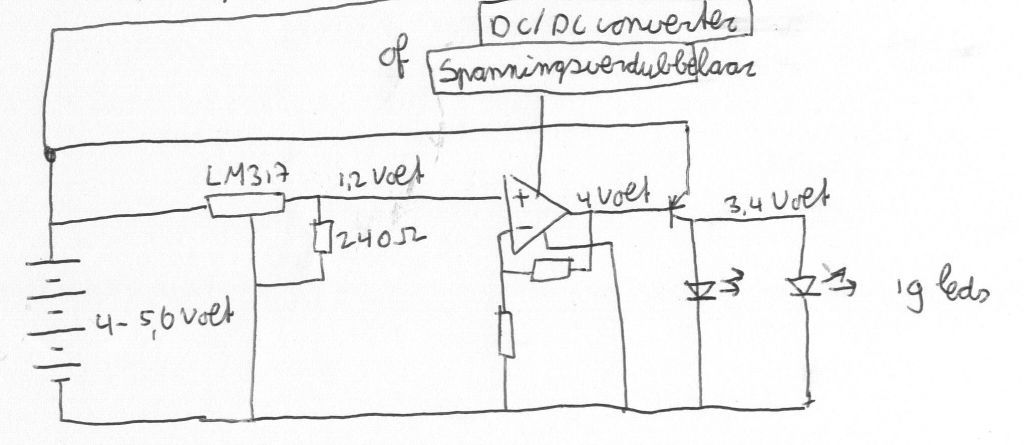 DC/DC converter
of
Spanningsverdubbelaar
LM317
1,2 Volt
4 Volt
3,4 Volt
240Ω
+
-
4-5,6 Volt
19 leds